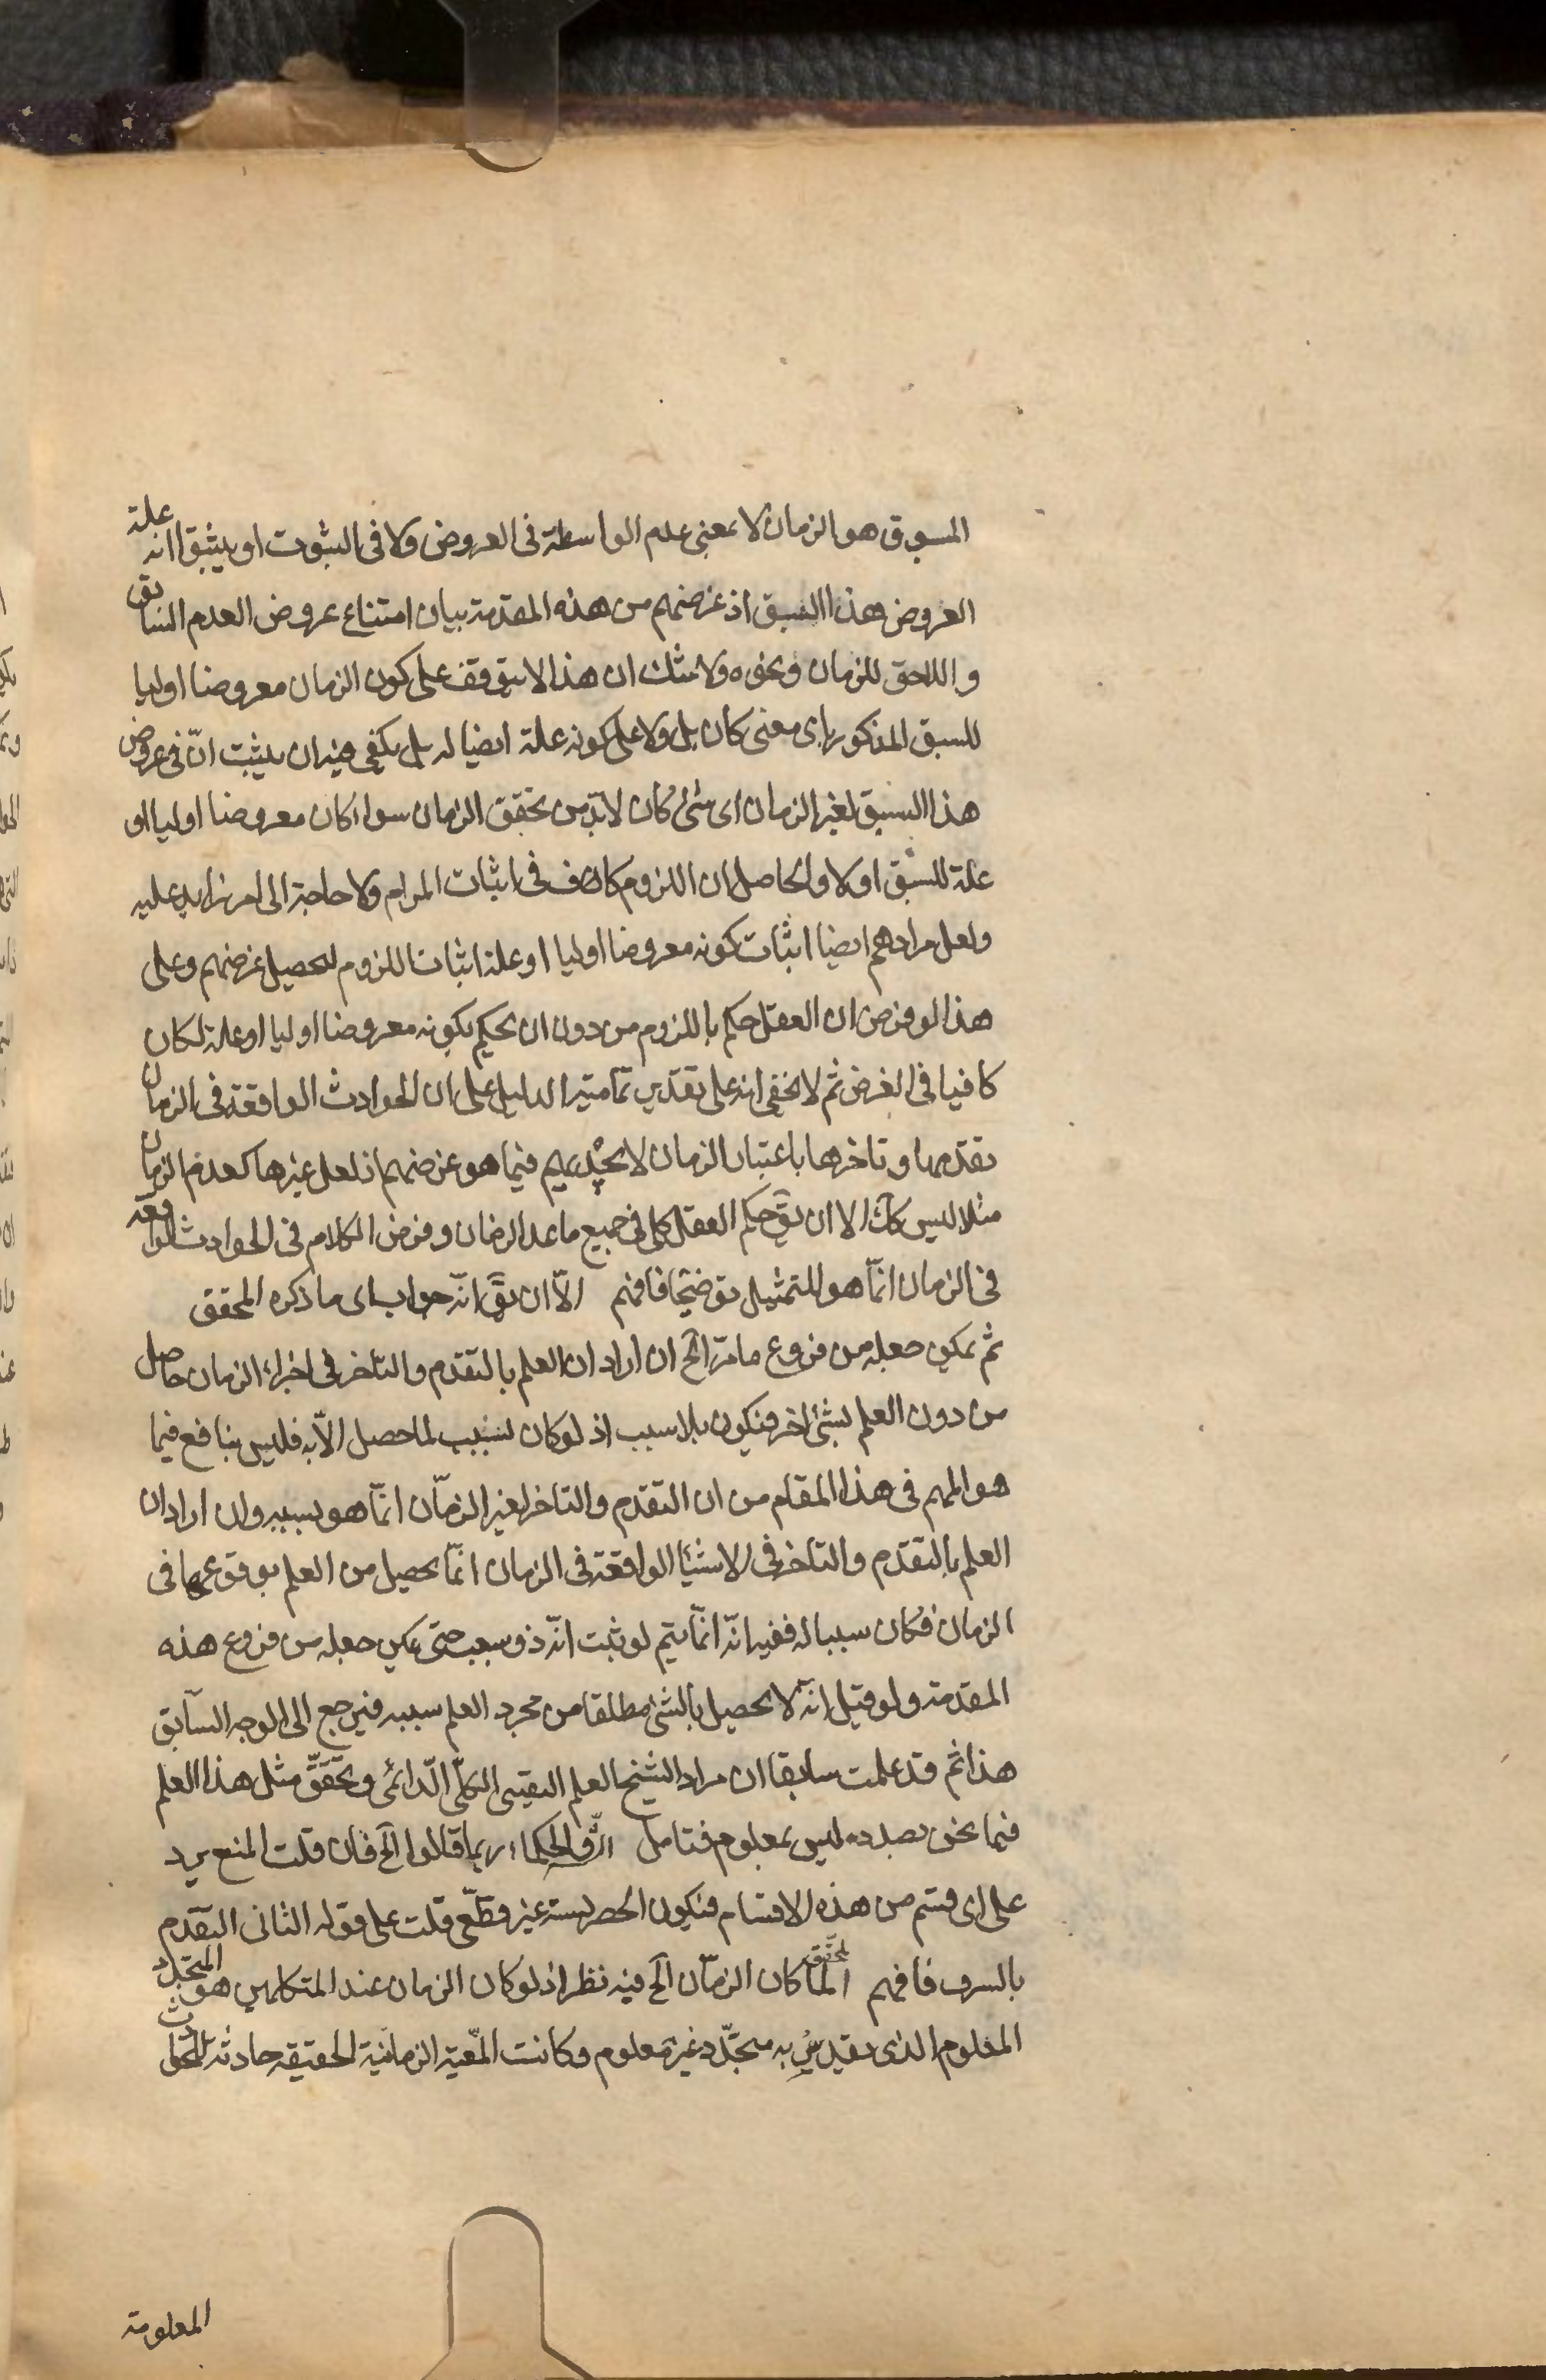 المسبوق هو الزمان لا بمعنى عدم الواسطة فى العروض ولا فى الثبوت او يثبتوا انه علة
العروض هذا السبق اذ غرضهم من هذه المقدمة بيان امتناع عروض العدم السابق
و اللاحق للزمان ونحوه ولا شك ان هذا لا يتوقف على كون الزمان معروضا اوليا
للسبق المذكور باى معنى كان بل ولا على كونه علة ايضا له بل يكفى فيه ان يثبت انّ فى عروض
هذا السبق لغير الزمان اى شئ كان لابدّ من تحقق الزمان سواء كان معروضا اوليا او
علة للسبق اولا والحاصل ان اللزوم كاف فى اثبات المرام ولا حاجة الى امر زايد عليه
ولعل مرادهم ايضا اثبات كونه معروضا اوليا او علة اثبات اللزوم لتحصيل غرضهم وعلى
هذا لو فرض ان العقل حكم باللزوم من دون ان يحكم بكونه معروضا اوليا او علة لكان
كافيا فى الغرض ثم لا يخفى انه على تقدير تمامية الدليل على ان الحوادث الواقعة فى الزمان
تقدمها و تاخرها باعتبار الزمان لا يجديهم فيما هو غرضهم اذ لعل غيرها كعدم الزمان
مثلا ليس كك الا ان يق حكم العقل كلى فى جميع ما عدا الزمان وفرض الكلام فى الحوادث الواقعة
فى الزمان انّما هو للتمثيل توضيحا فافهم الّا ان يق انّه جواب اى ما ذكره المحقق
ثم يمكن جعله من فروع ما مرّ الخ ان اراد ان العلم بالتقدم والتاخر فى اجزاء الزمان حاصل
من دون العلم بشئ اخر فيكون بلا سبب اذ لو كان لسبب لما حصل الّا به فليس بنافع فيما
هو المهم فى هذا المقام من ان التقدم والتاخر لغير الزمان انّما هو بسببه وان اراد ان
العلم بالتقدم والتاخر فى الاشيا الواقعة فى الزمان انّما يحصل من العلم بوقوعها فى
الزمان فكان سببا له ففيه انّه انّما يتم لو ثبت انّه ذو سبب حتى يمكن جعله من فروع هذه
المقدمة ولو قيل انّه لا يحصل بالشئ مطلقا من مجرد العلم بسببه فيرجع الى الوجه السابق
هذا ثم قد علمت سابقا ان مراد الشيخ العلم اليقينى الكلّى الدائمى وتحقّق مثل هذا العلم
فيما نحن بصدده ليس بمعلوم فتامل الحكماء ربما قالوا الخ فان قلت المنع يرد
على اى قسم من هذه الاقسام فيكون الحصر لستة غير قطعى قلت على قوله الثانى التقدم
بالشرف فافهم لما كان الزمان الخ فيه نظر اذ لو كان الزمان عند المتكلمين هو المتجدد
المعلوم الذى يقدر به متجدّد غير معلوم وكانت المعيّة الزمانية الحقيقه حادثة
المعلومة